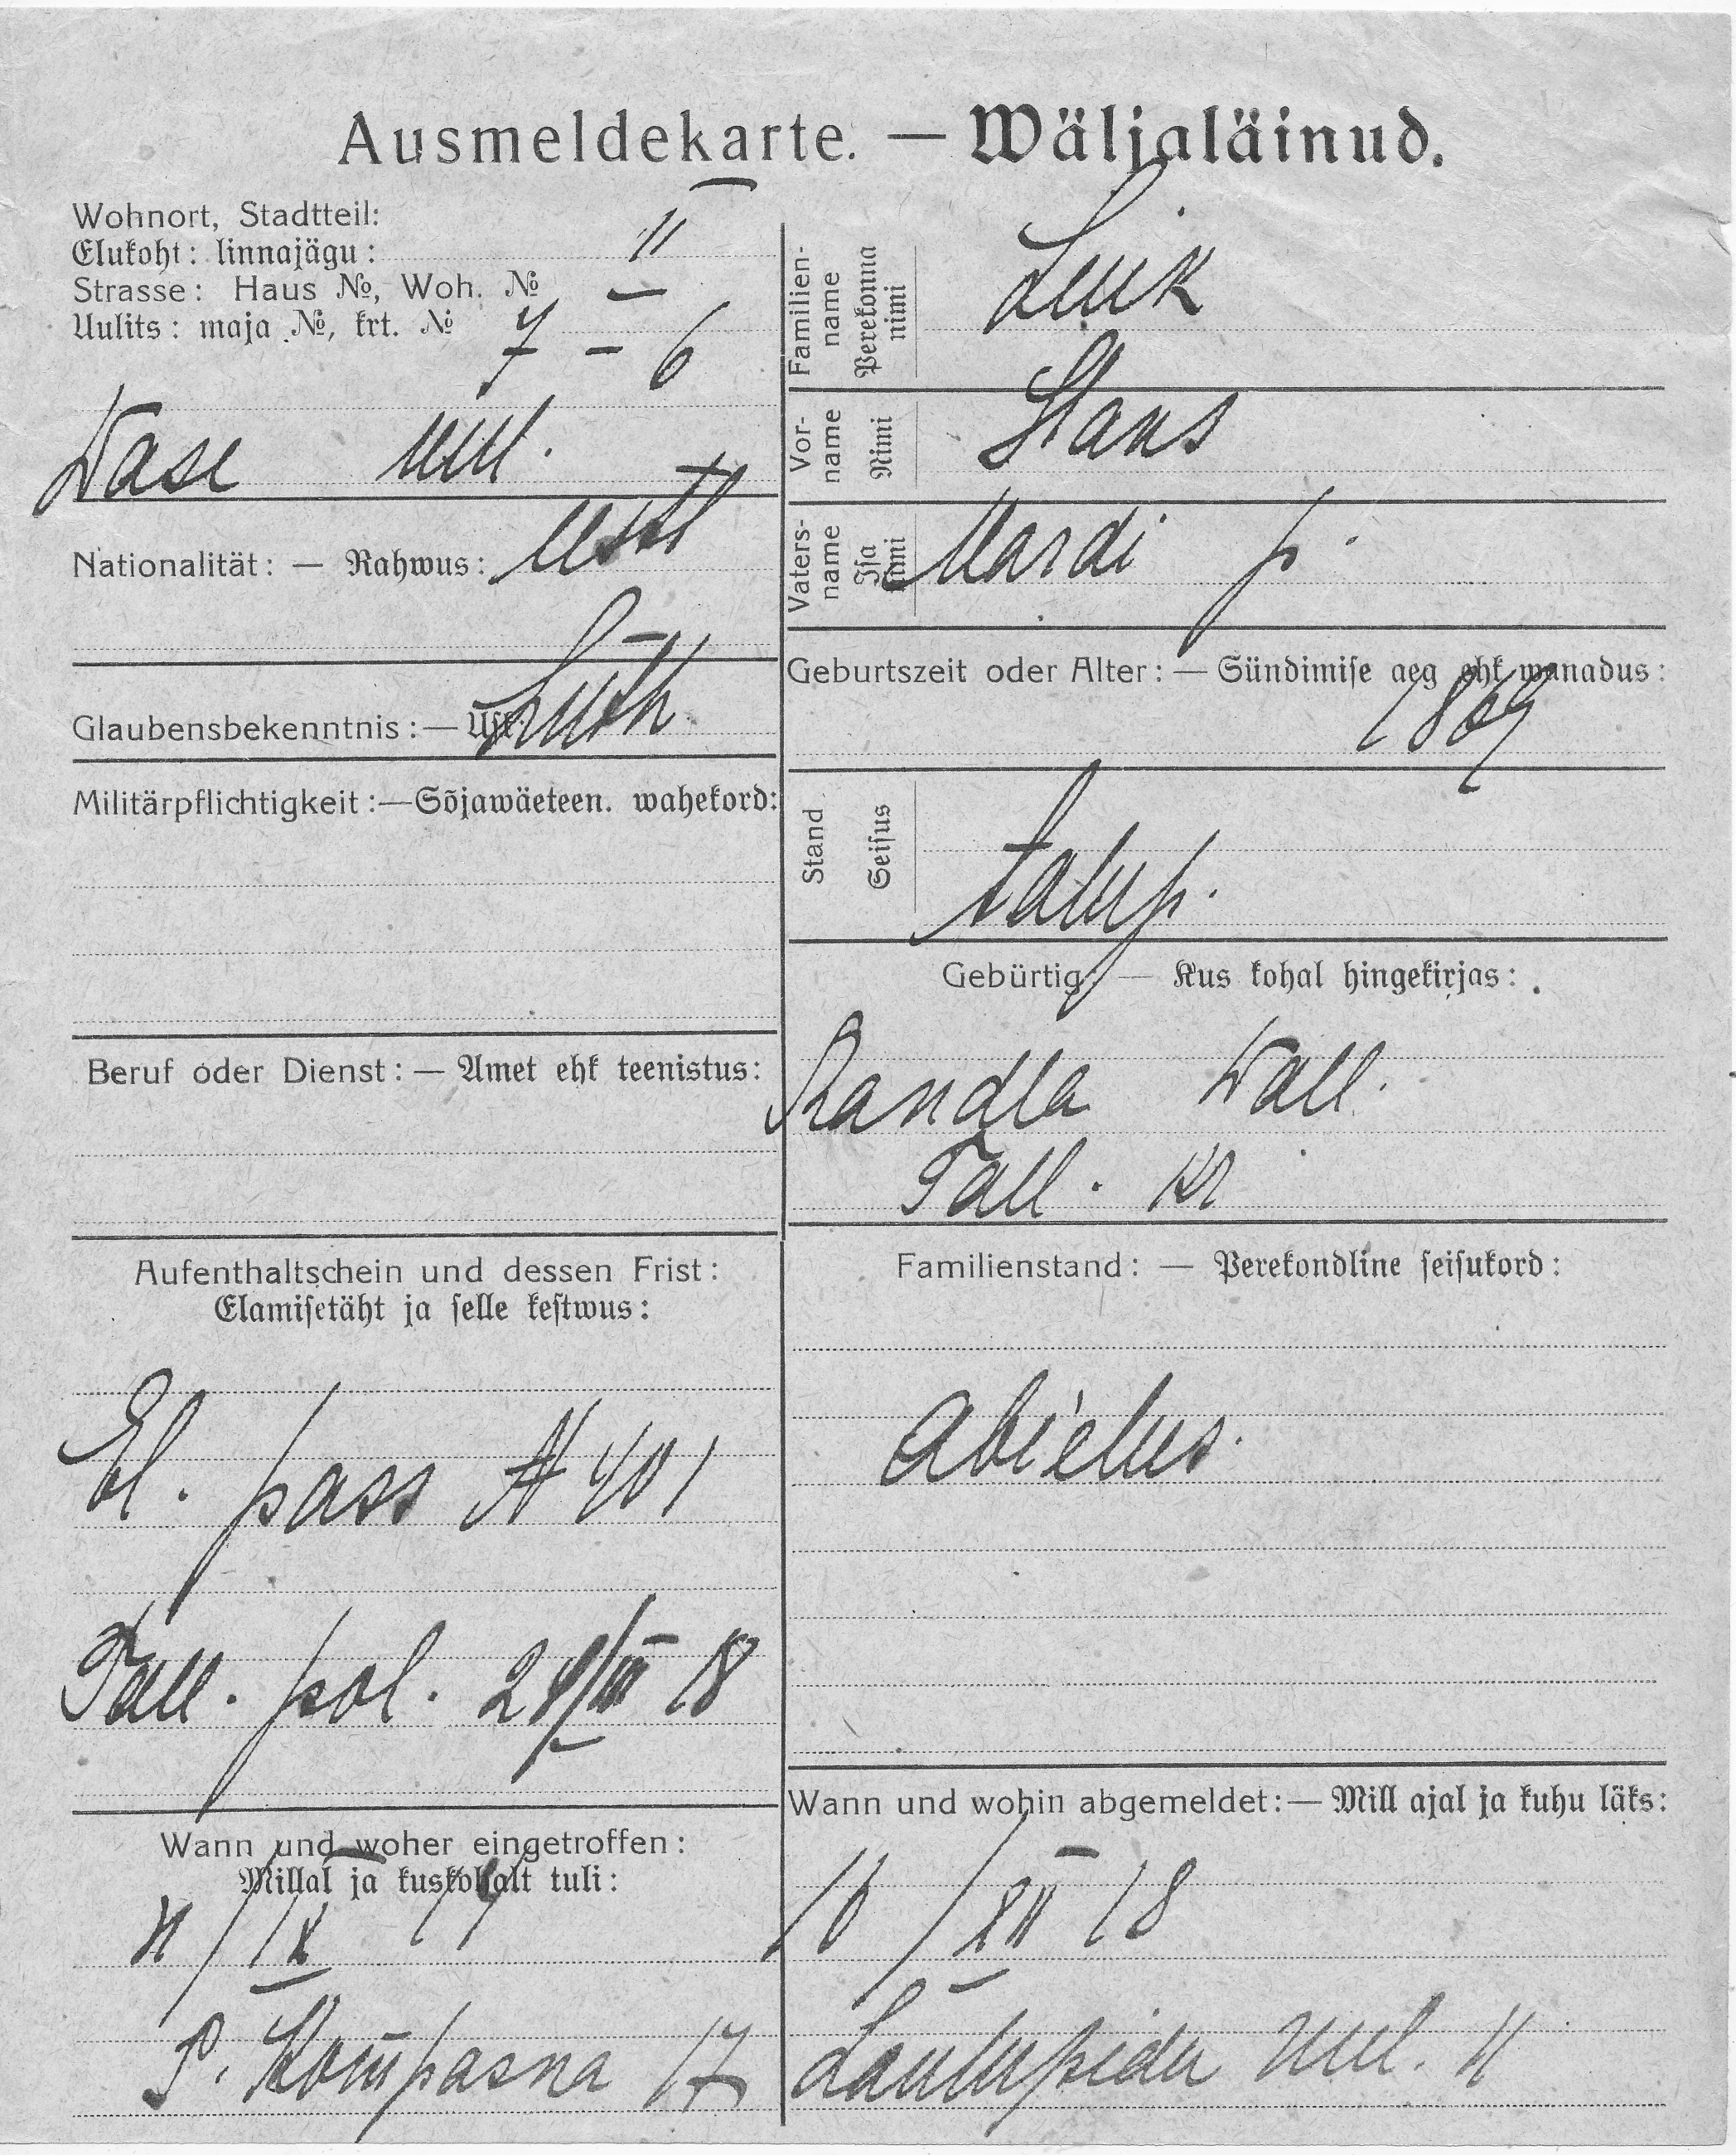 Ausmeldekarte. — Wäljaläinud.
Wohnort, Stadtteil:
Elukoht: linnajägu: II
Strasse: Haus №, Woh. №
Uulits: maja №, krt. № 7 – 6
Wase uul.
Nationalität: — Rahwus: eestl
Glaubensbekenntnis: — Usk: Luth.
Militärpflichtigkeit: — Sõjawäeteen. wahekord:
Beruf oder Dienst: — Amet ehk teenistus:
Aufenthaltschein und dessen Frist:
Elamisetäht ja selle kestwus:
El. pass № 401
Tall. pol. /III 18
Wann und woher eingetroffen:
Millal ja kuskohalt tuli:
/IX
S. Kompasna 17
Familien-name Perekonna nimi Luik
Vor-name Nimi Hans
Vaters-name Isa nimi Mardi p.
Geburtszeit oder Alter: — Sündimise aeg ehk wanadus:
1869
Stand Seisus talup.
Gebürtig: — Kus kohal hingekirjas:
Randla wall.
Tall. kr
Familienstand: — Perekondline seisukord:
abielus.
Wann und wohin abgemeldet: — Mill ajal ja kuhu läks:
16/XII 18
Laulupidu uul. 11